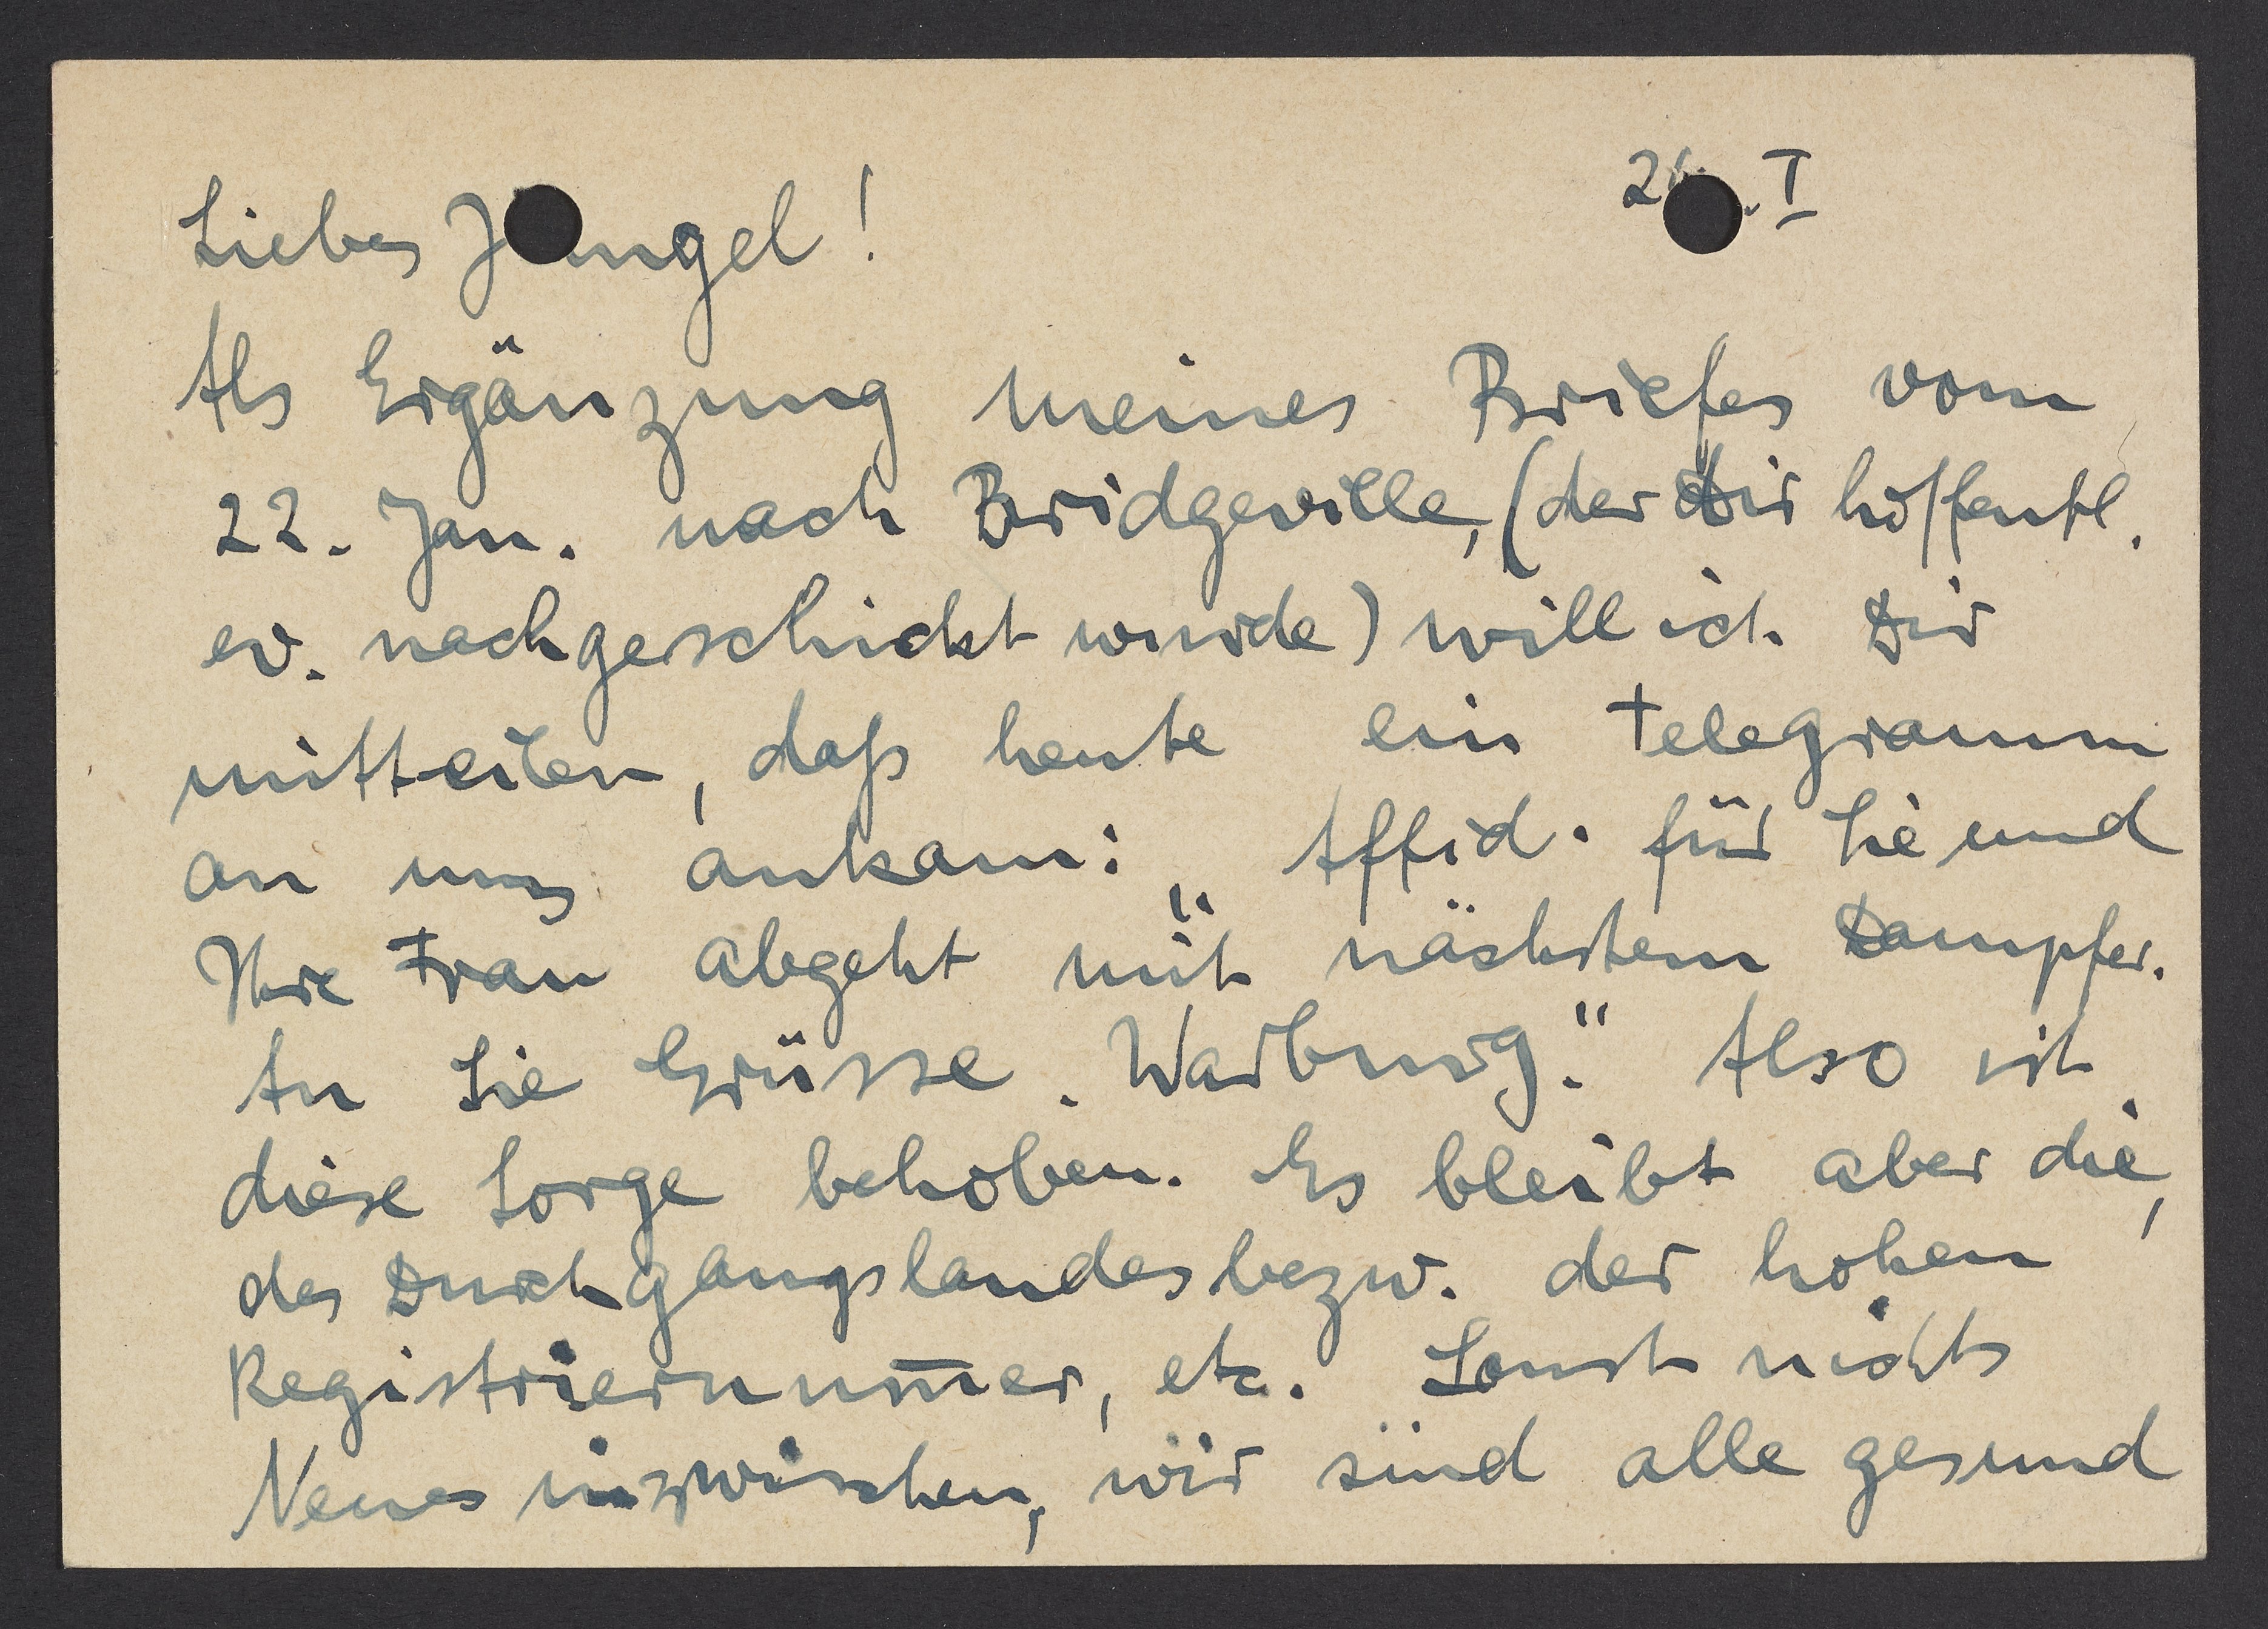 26. I
Liebes Jungel!
Als Ergänzung meines Briefes vom
22. Jan. nach Bridgeville, (der Dir hoffentl.
ev. nachgeschickt wurde) will ich Dir
mitteilen, daß heute ein Telegramm
an uns ankam: „Affid. für Sie und
Ihre Frau abgeht mit nächstem Dampfer.
An Sie Grüsse. Warburg." Also ist
diese Sorge behoben. Es bleibt aber die,
des Durchgangslandes bezw. der hohen
Registriernum̅er, etc. Sonst nichts
Neues inzwischen, wir sind alle gesund